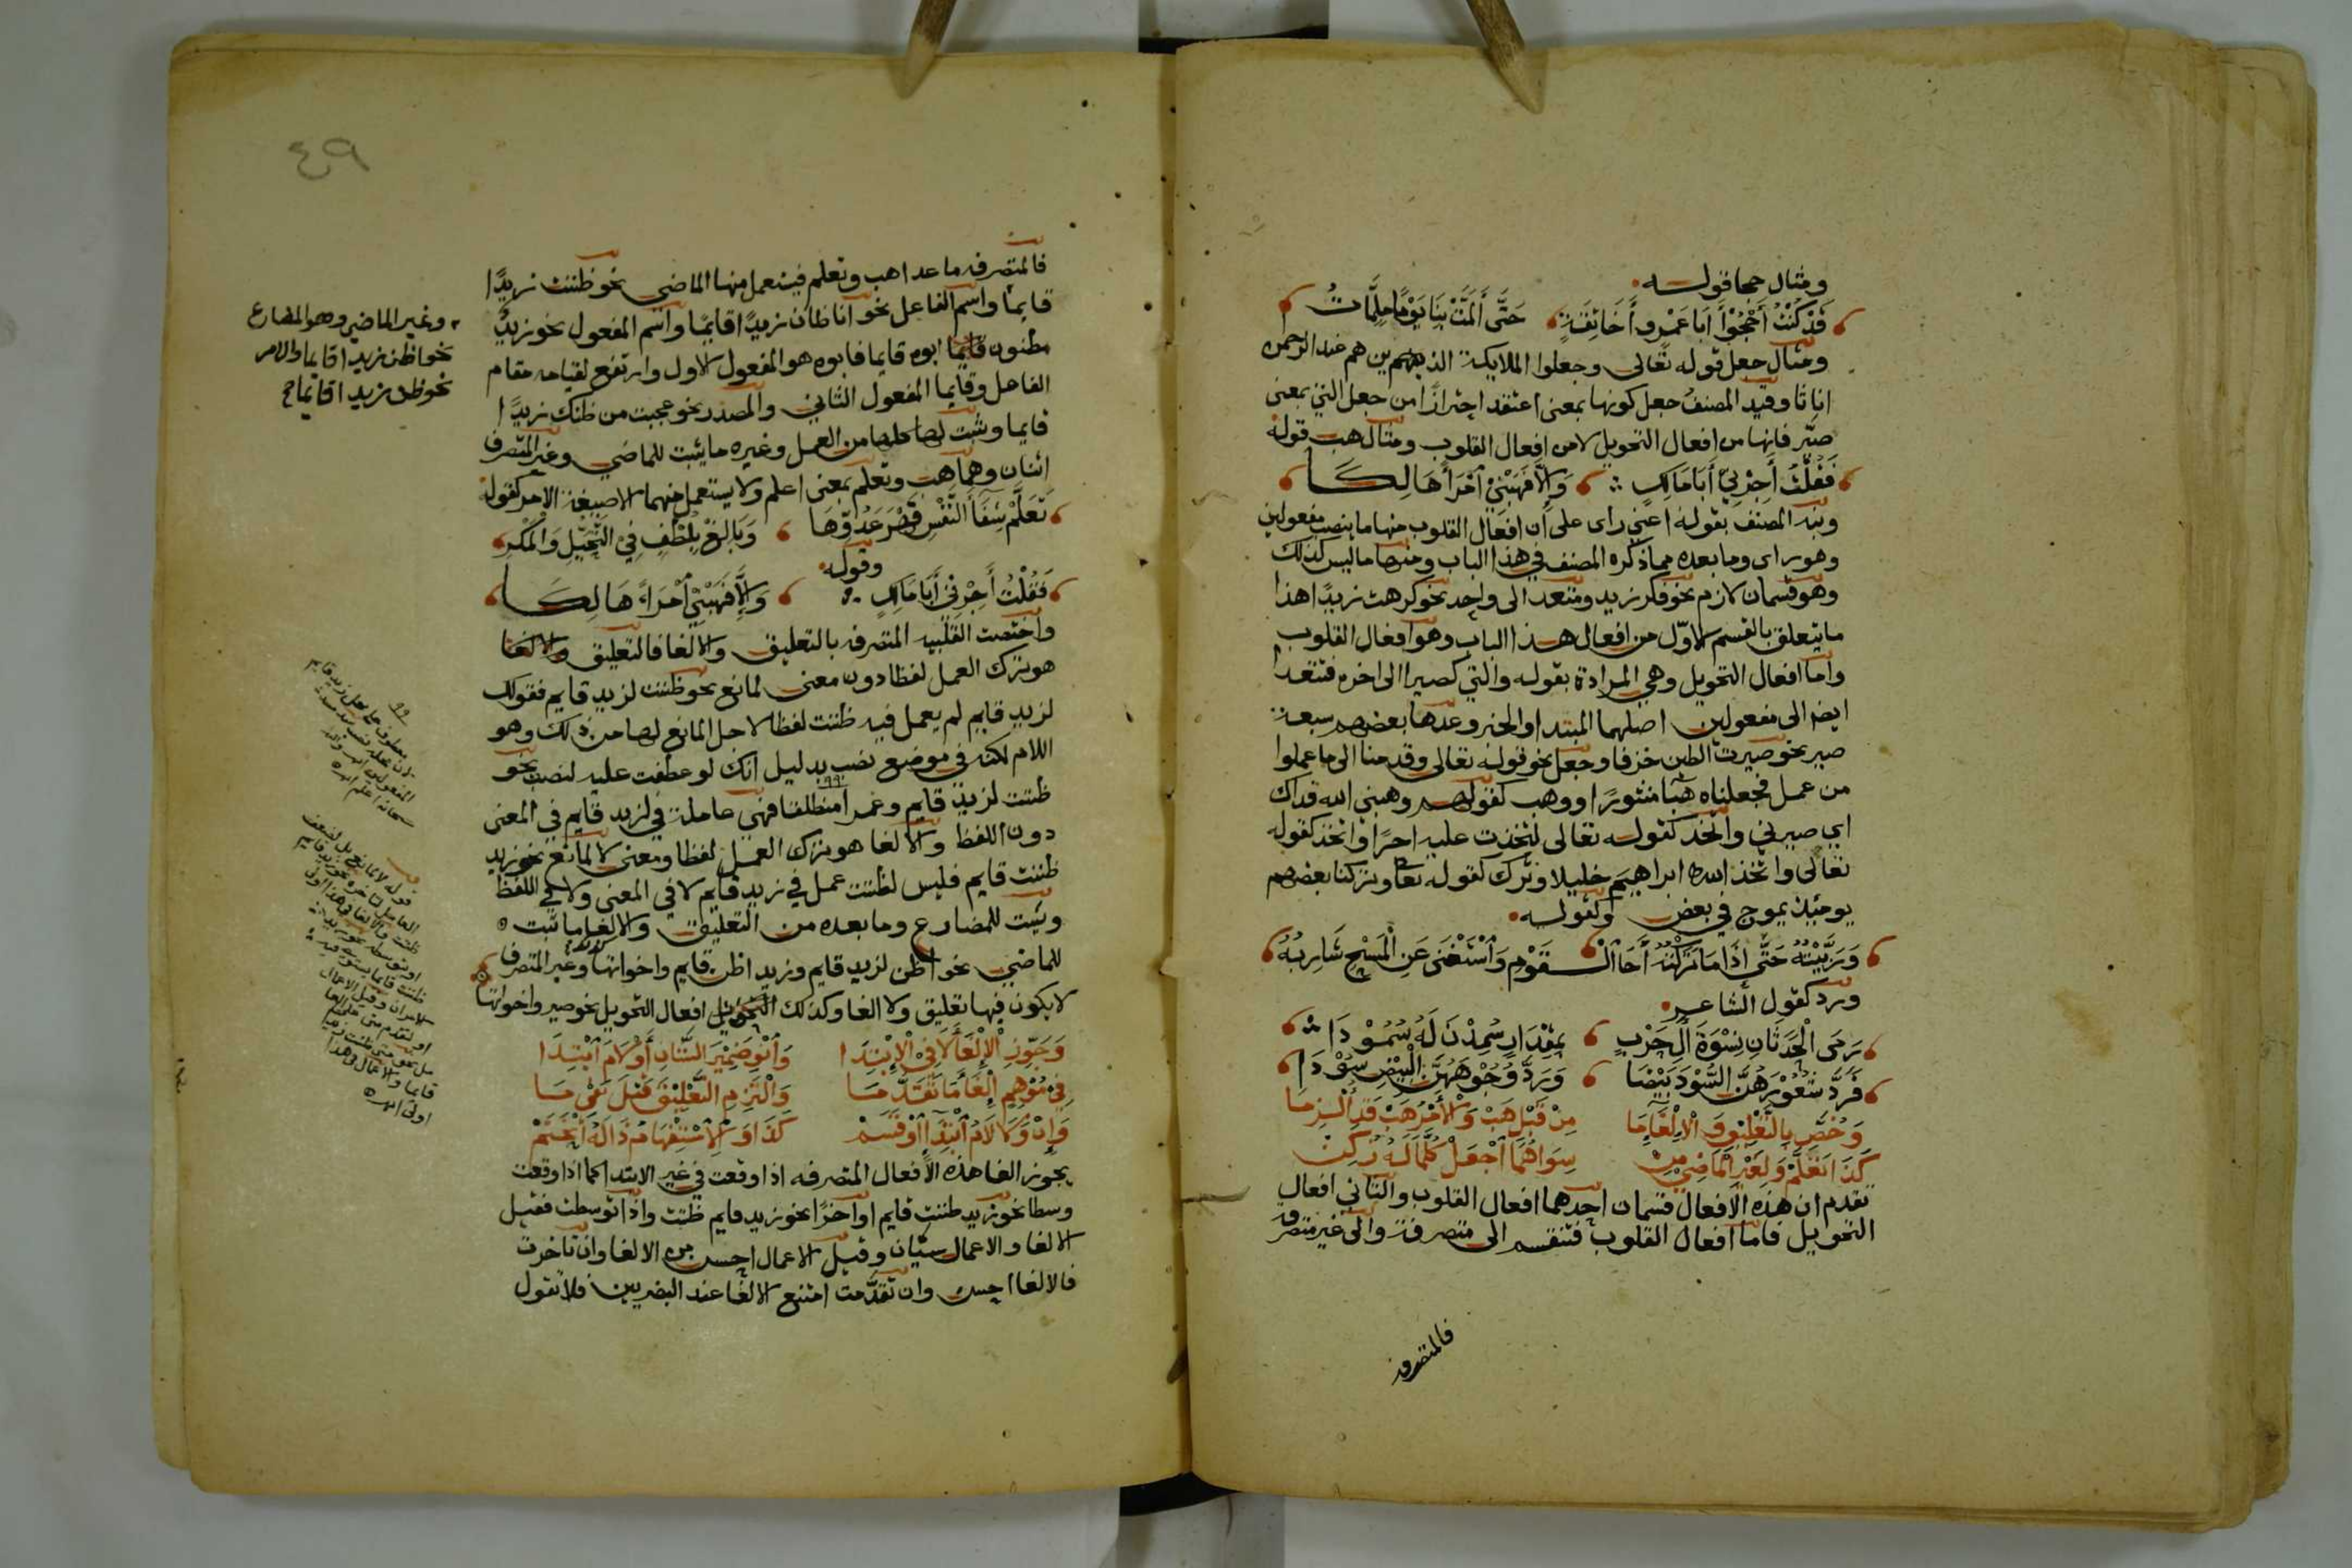 ومثال حجا قوله
قَدْ كُنْتُ أَحْجُوْ أَبَا عَمْرٍو أَخَا ثِقَةٍ حَتَّى أَلَمَّتْ بِنَا يَوْمًا مُلِمَّاتُ
ومثال جعل قوله تعالى وجعلوا الملايكة الذين هم عند الرحمن
اناثا وقيد المصنف جعل كونها بمعنى اعتقد احترازا من جعل التي بمعنى
صيّر فانها من افعال التحويل لا من افعال القلوب ومثال هب قوله
فَقُلْتُ أَجِرْنِي أَبَا مَالِكٍ وَإِلَّا فَهَبْنِي امْرَأً هَالِكَا
ونبه المصنف بقوله اعني راى على أن افعال القلوب منها ما ينصب مفعولين
وهو راى وما بعده مما ذكره المصنف في هذا الباب ومنها ما ليس كذلك
وهو قسمان لازم نحو فكر زيد ومتعد الى واحد نحو كرهت زيدًا هذا
ما يتعلق بالقسم الاوّل من افعال هذا الباب وهو افعال القلوب
واما افعال التحويل وهي المرادة بقوله والتي كصيرا الى اخره فتتعدا
ايضا الى مفعولين اصلهما المبتدا والخبر وعدها بعضهم سبعة
صير نحو صيرت الطين خزفا وجعل نحو قوله تعالى وقدمنا الى ما عملوا
من عمل فجعلناه هبا منثورًا ووهب كقولهم وهبني الله فداك
اي صيرني واتخذ كقوله تعالى لتخذت عليه اجرًا واتخذ كقوله
تعالى واتخذ الله ابراهيم خليلا وترك كقوله تعا وتركنا بعضهم
يومئذ يموج في بعض وكقوله
وَرَبَّيْتُهُ حَتَّى إِذَا مَا تَرَكْتُهُ أَخَا الْقَوْمِ وَاسْتَغْنَى عَنِ الْمَسْحِ شَارِبُهُ
ورد كقول الشاعر
رَمَى الْحَدَثَانِ نِسْوَةَ آلِ حَرْبٍ بِمِقْدَارٍ سَمِدْنَ لَهُ سُمُوْدَا
فَرَدَّ شُعُوْرَهُنَّ السُّوْدَ بِيْضًا وَرَدَّ وُجُوْهَهُنَّ الْبِيْضَ سُوْدَا
وَخُصَّ بِالتَّعْلِيْقِ وَالْإِلْغَاءِ مَا مِنْ قَبْلِ هَبْ وَالْأَمْرَ هَبْ قَدْ أُلْزِمَا
كَذَا تَعَلَّمْ وَلِغَيْرِ الْمَاضِ مِنْ سِوَاهُمَا اجْعَلْ كُلَّ مَا لَهُ زُكِنْ
تقدم ان هذه الافعال قسمان احدهما افعال القلوب والثاني افعال
التحويل فاما افعال القلوب فتنقسم الى متصرفة والى غير متصرفة
فالمتصرفة
٤٩
فالمتصرفه ما عدا هب وتعلم فيستعمل منها الماضي نحو ظننت زيدًا
قايما واسم الفاعل نحو انا ظان زيدًا قايمًا واسم المفعول نحو زيدٌ
مظنون ابوه قايما فابوه هو المفعول الاول وارتفع لقيامه مقام
الفاعل وقايما المفعول الثاني والمصدر نحو عجبت من ظنك زيدًا
قايما وثبت لها كلها من العمل وغيره ما يثبت للماضي وغير المتصرف
اثنان وهما هب وتعلم بمعنى اعلم ولا يستعمل منهما الا صيغة الامر كقوله
تَعَلَّمْ شِفَاءَ النَّفْسِ قَهْرَ عَدُوِّهَا وَبَالِغْ بِلُطْفٍ فِي التَّحَيُّلِ وَالْمَكْرِ
وقوله
فَقُلْتُ أَجِرْنِي أَبَا مَالِكٍ وَإِلَّا فَهَبْنِي امْرَاءً هَالِكَا
واختصت القلبيه المتصرفه بالتعليق والالغا فالتعليق
هو ترك العمل لفظا دون معنى لمانع نحو ظننت لزيد قايم فقولك
لزيد قايم لم يعمل فيه ظننت لفظا لاجل المانع لها من ذلك وهو
اللام لكنه في موضع نصب بدليل انك لو عطفت عليه لنصبت نحو
ظننت لزيد قايم وعمرا منطلقا فهي عاملة في لزيد قايم في المعنى
دون اللفظ والالغا هو ترك العمل لفظا ومعنى لا لمانع نحو زيد
ظننت قايم فليس لظننت عمل في زيد قايم لا في المعنى ولا في اللفظ
ويثبت للمضارع وما بعده من التعليق والالغا ما ثبت
للماضي نحو اظن لزيد قايم وزيد اظن قايم واخواتها وغير المتصرف
لا يكون فيها تعليق ولا الغا وكذلك افعال التحويل نحو صير واخواتها
وَجَوِّزِ الْإِلْغَاءَ لَا فِي الْإِبْتِدَا وَانْوِ ضَمِيْرَ الشَّانِ أَوْ لَامَ ابْتِدَا
فِي مُوْهِمٍ إِلْغَاءَ مَا تَقَدَّمَا وَالْتُزِمِ التَّعْلِيْقَ قَبْلَ نَفْيِ مَا
وَإِنْ وَلَا لَامُ ابْتِدَاءٍ أَوْ قَسَمْ كَذَا وَالِاسْتِفْهَامُ ذَا لَهُ انْحَتَمْ
يجوز الغا هذه الافعال المتصرفه اذا وقعت في غير الابتدا كما اذا وقعت
وسطا نحو زيد ظننت قايم او اخرًا نحو زيد قايم ظننت واذا توسطت فقيل
الالغا والاعمال سيّان وقيل الاعمال احسن من الالغا وان تاخرت
فالالغا احسن وان تقدَّمت امتنع الالغا عند البصريين فلا تقول
وغير الماضي وهو المضارع
نحو اظن زيدا قايما والامر
نحو ظن زيدا قائما